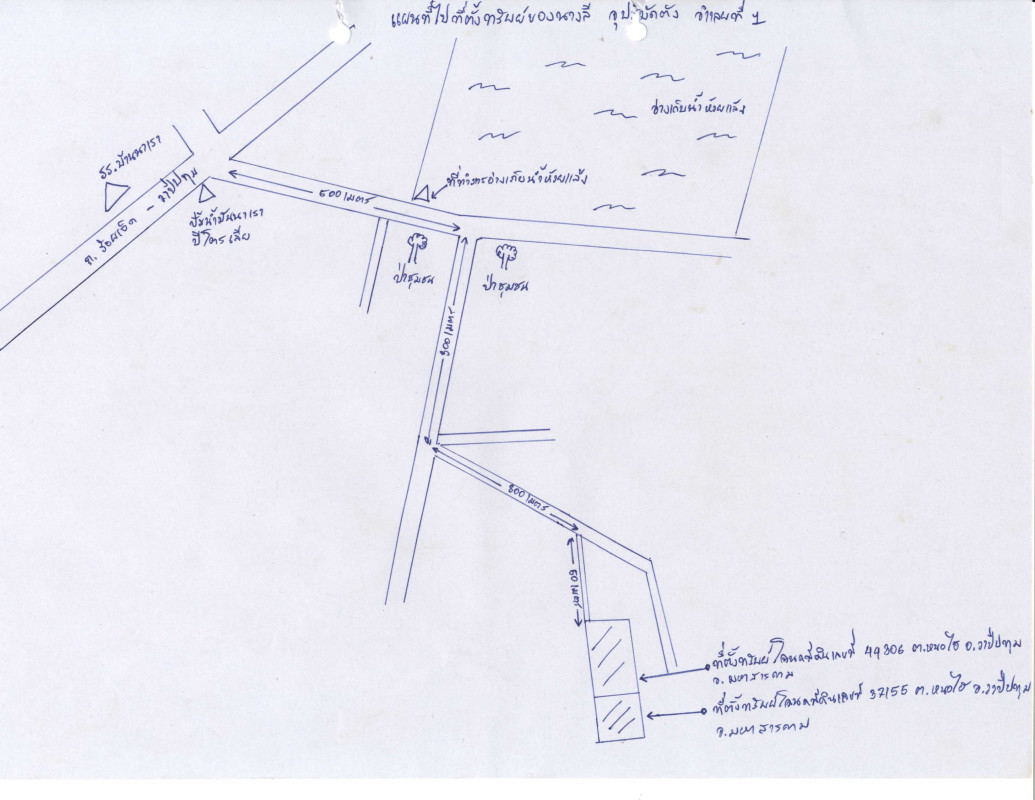 แผนที่ไปที่ตั้งทรัพย์ของนางสี อุปะมัดตัง จำเลยที่ 1
อ่างเก็บน้ำห้วยแล้ง
รร.บ้านนาเรา
ถ. ร้อยเอ็ด - วาปีปทุม
ปั๊มน้ำมันนาเรา
ปิโตรเลียม
ที่ทำการอ่างเก็บน้ำห้วยแล้ง
500 เมตร
ป่าชุมชน
ป่าชุมชน
300 เมตร
300 เมตร
50 เมตร
ที่ตั้งทรัพย์ โฉนดที่ดินเลขที่ 49306 ต.หนองไฮ อ.วาปีปทุม
จ.มหาสารคาม
ที่ตั้งทรัพย์ โฉนดที่ดินเลขที่ 37155 ต.หนองไฮ อ.วาปีปทุม
จ.มหาสารคาม